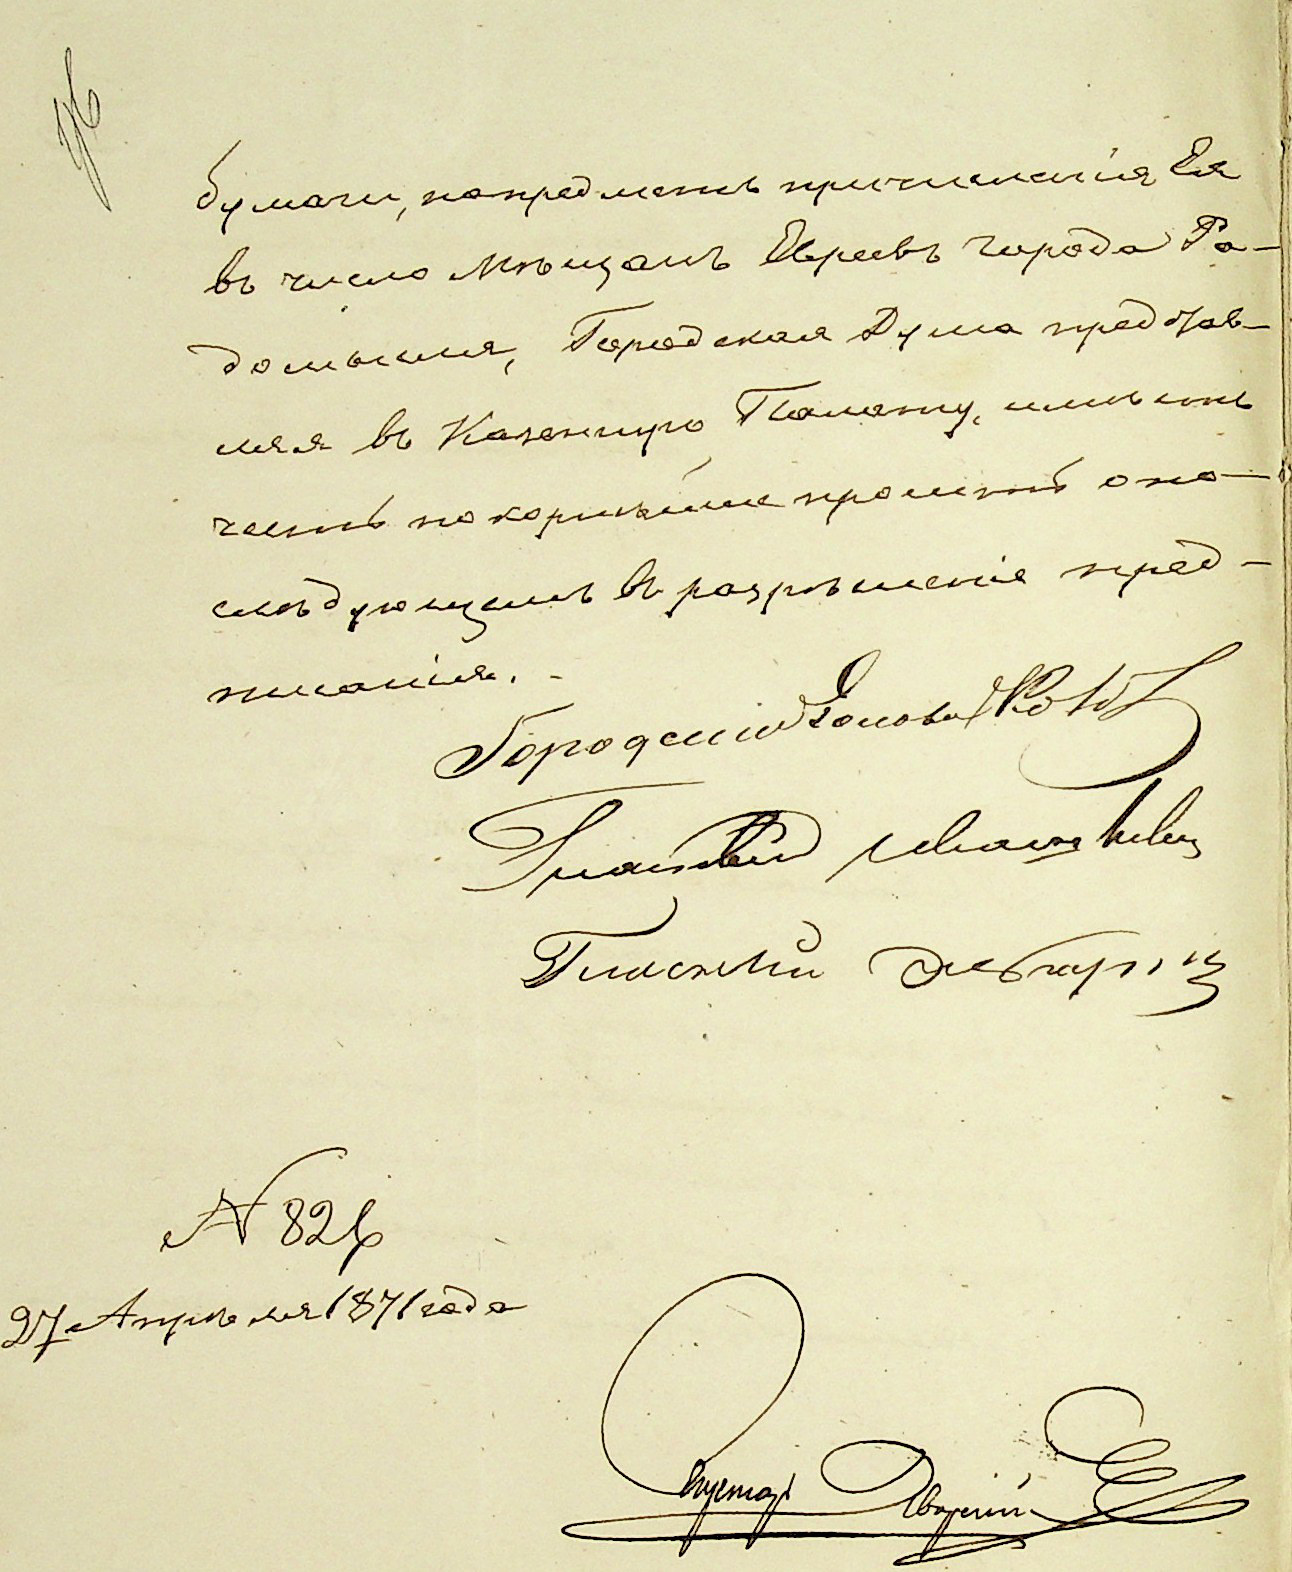 бумаги, по предмету причисленія Ея
въ число Мѣщанъ Евреевъ города Ра-
домысля, Городская Дума представ-
ляя въ Казенную Палату, имѣетъ
честь покорнѣйше просить о по-
слѣдующемъ въ разрѣшеніе пред-
писанія.
Городскій Голова
Гласный
Гласный
№ 826
27 Апрѣля 1871 года